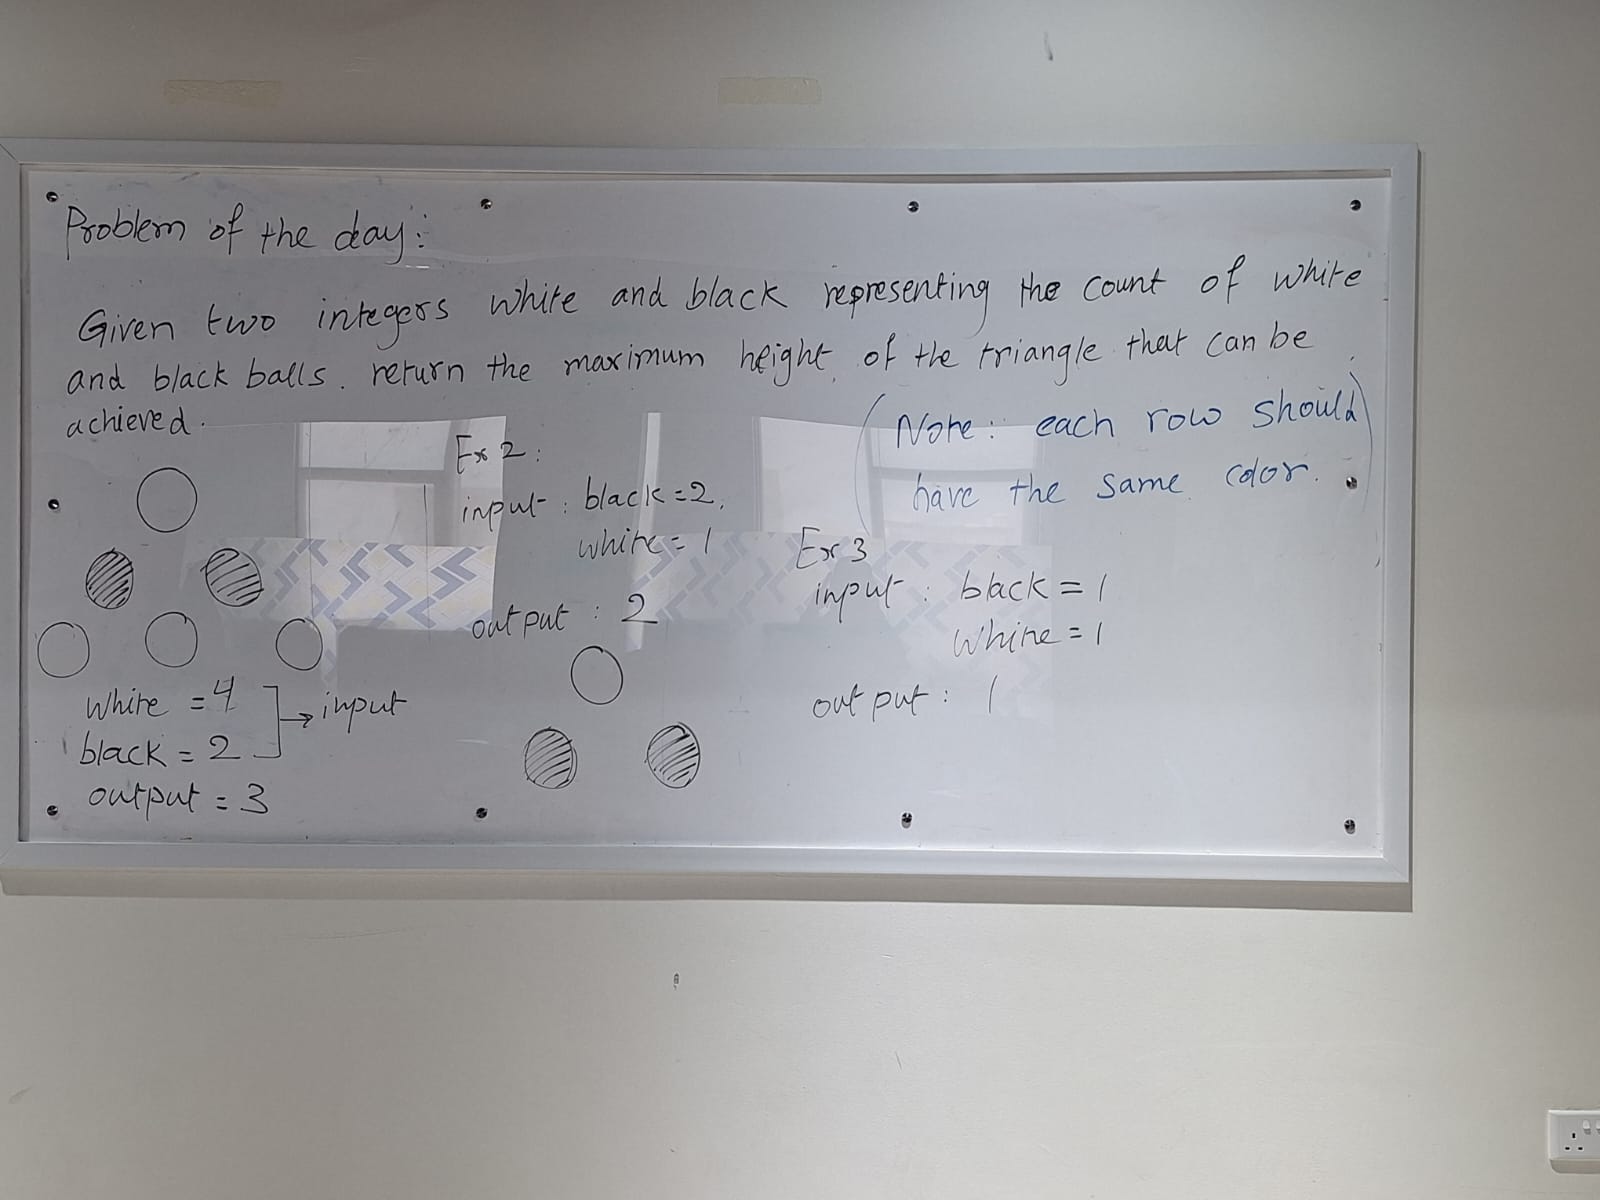 Problem of the day:
Given two integers white and black representing the count of white
and black balls. return the maximum height of the triangle that can be
achieved.
(Note: each row should
have the same color.)
white = 4
black = 2
→ input
output = 3
Ex 2:
input: black = 2,
white = 1
output: 2
Ex 3
input: black = 1
white = 1
output: 1